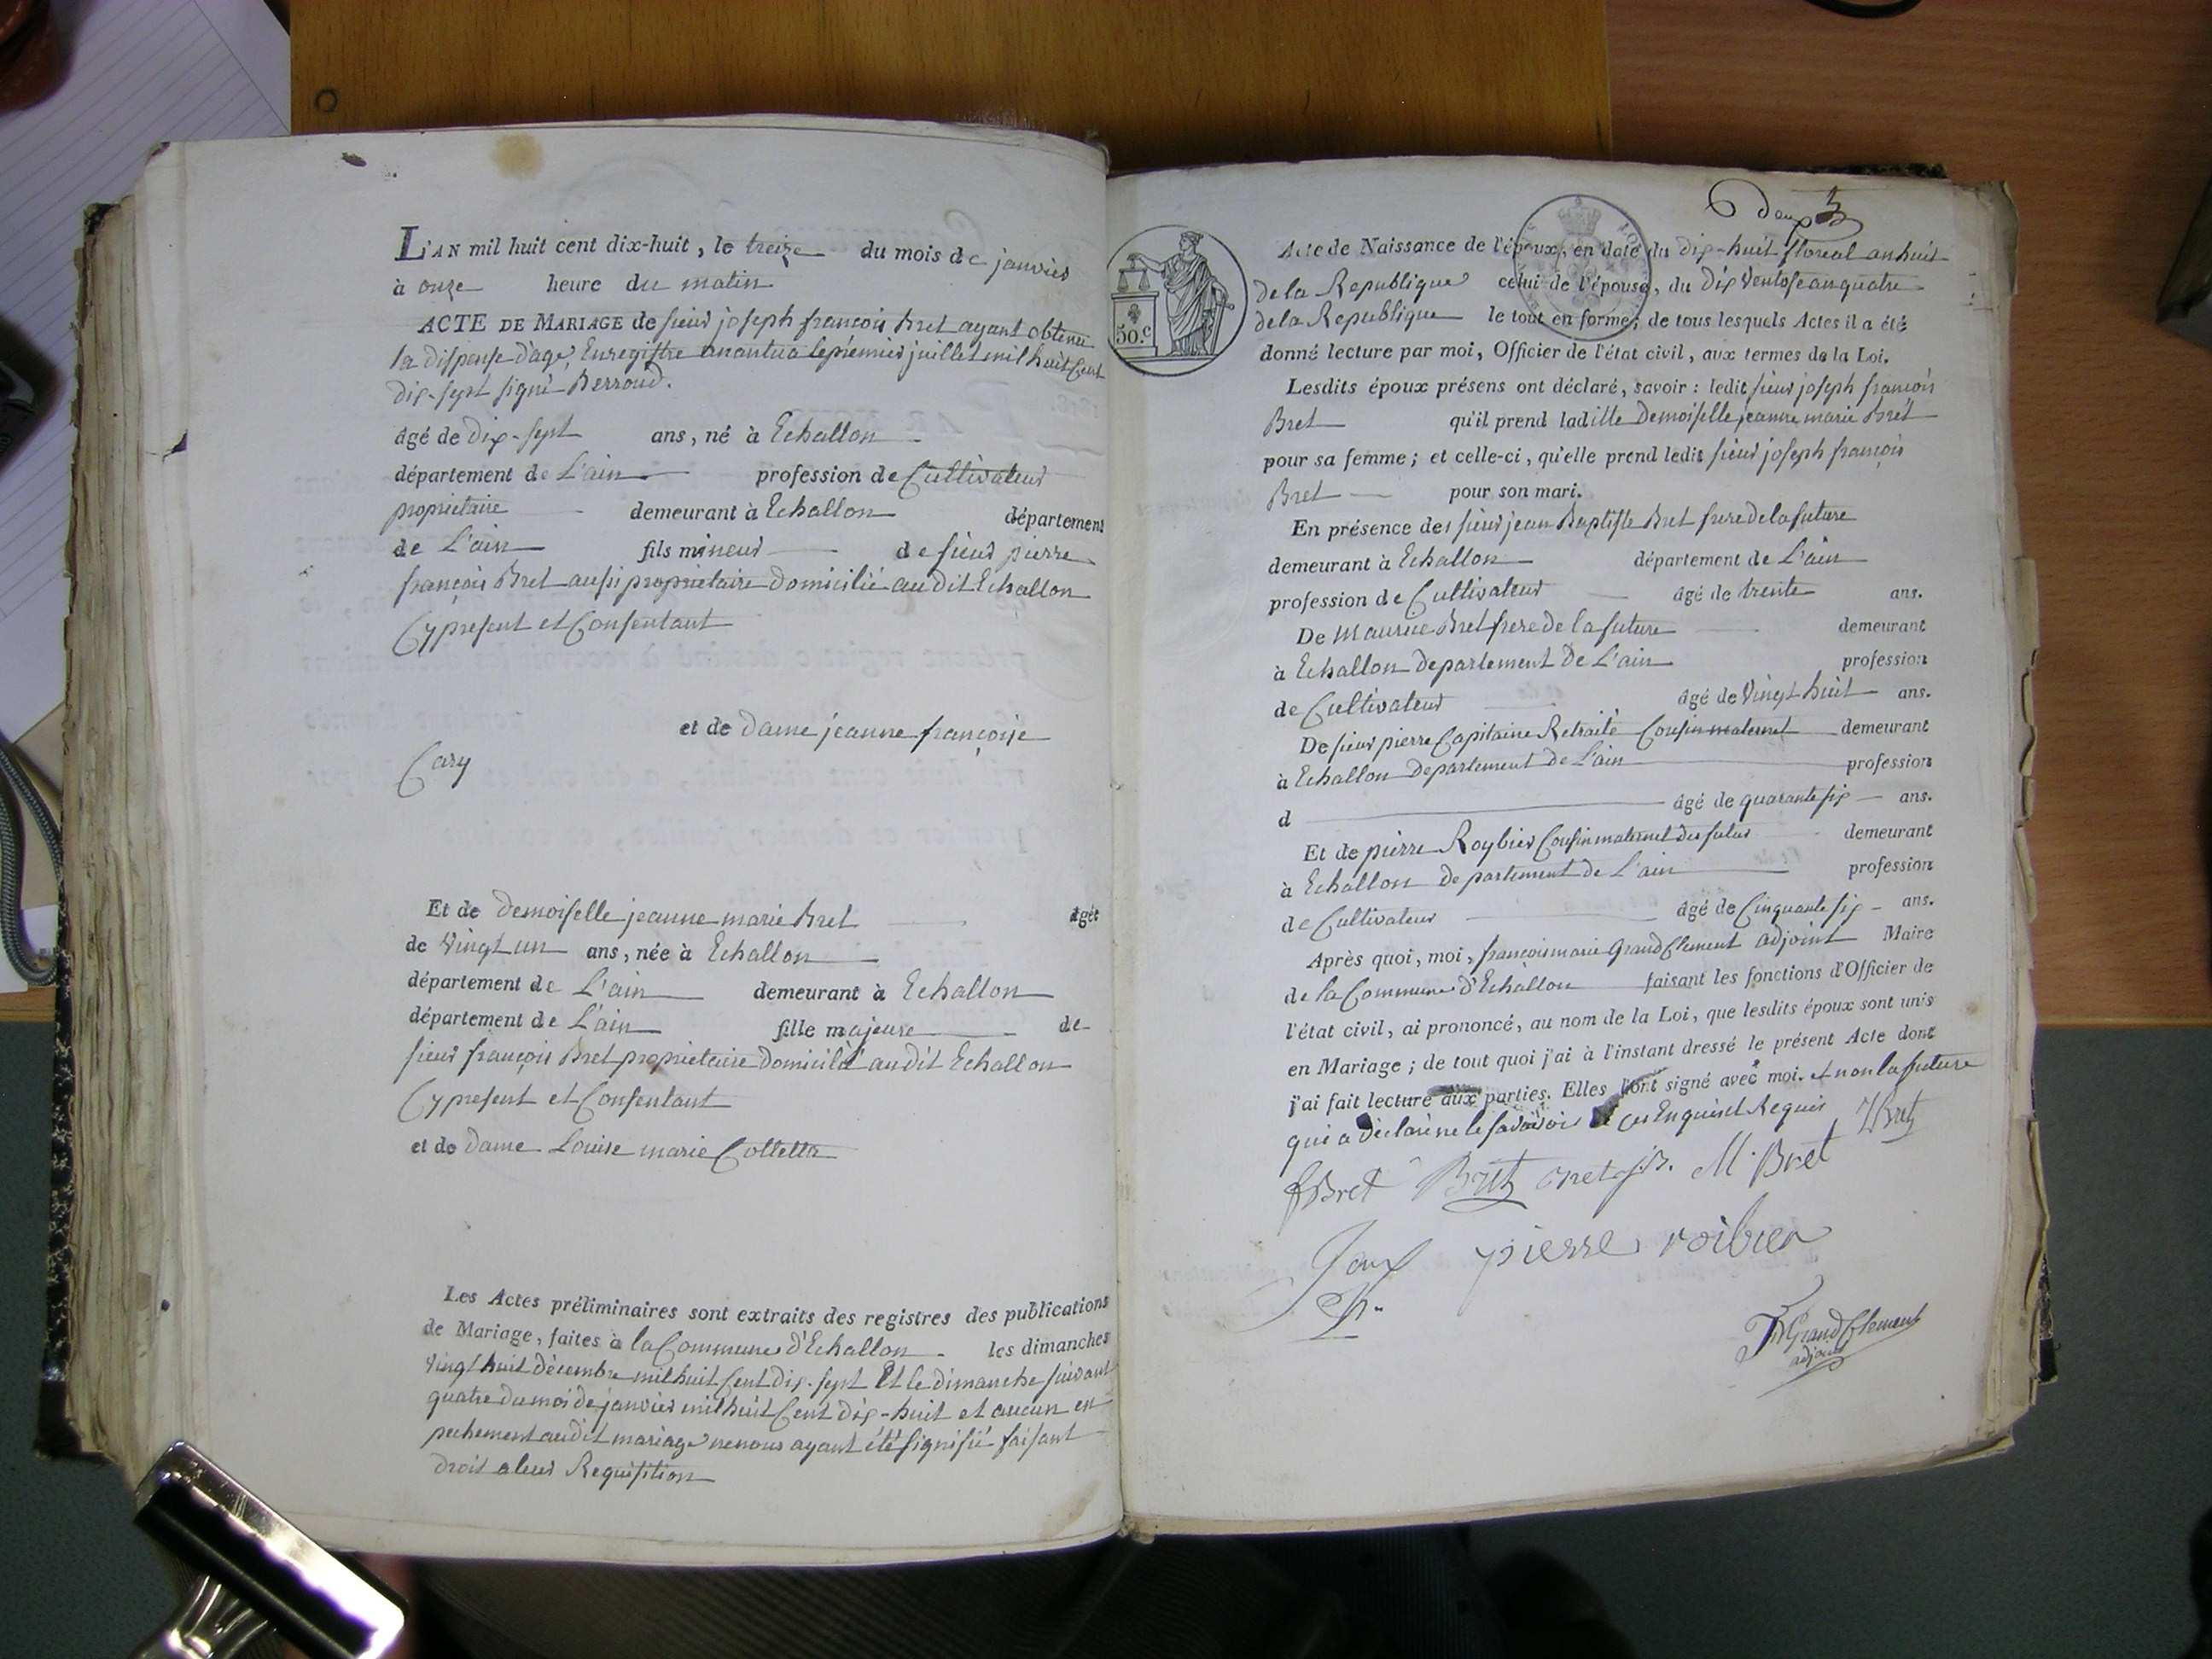 L'AN mil huit cent dix-huit, le treize du mois de janvier
à onze heure du matin
ACTE DE MARIAGE de sieur joseph françois Bret ayant obtenu
la dispense d'age, Enregistre anantua le premier juillet mil huit Cent
dix-sept signé Berroud.
âgé de dix-sept ans, né à Echallon
département de L'ain profession de Cultivateur
propriétaire demeurant à Echallon département
de L'ain fils mineur de sieur pierre
françois Bret aussi propriétaire domicilié audit Echallon
Cy present et Consentant
et de dame jeanne françoise
Cary
Et de demoiselle jeanne marie Bret âgée
de vingt un ans, née à Echallon
département de L'ain demeurant à Echallon
département de L'ain fille majeure de
sieur françois Bret propriétaire domicilié audit Echallon
Cy present et Consentant
et de dame Louise marie Colletta
Les Actes préliminaires sont extraits des registres des publications
de Mariage, faites à la Commune d'Echallon les dimanches
vingt huit décembre mil huit Cent dix-sept Et le dimanche suivant
quatre du mois de janvier mil huit Cent dix-huit et aucun em
pechement audit mariage ne nous ayant été signifié faisant
droit a leur Requisition
deux
50.c
Acte de Naissance de l'époux, en date du dix-huit floreal an huit
de la Republique celui de l'épouse, du dix ventose an quatre
de la Republique le tout en forme; de tous lesquels Actes il a été
donné lecture par moi, Officier de l'état civil, aux termes de la Loi.
Lesdits époux présens ont déclaré, savoir: ledit sieur joseph françois
Bret qu'il prend laditte demoiselle jeanne marie Bret
pour sa femme; et celle-ci, qu'elle prend ledit sieur joseph françois
Bret pour son mari.
En présence des sieur jean Baptiste Bret frere de la future
demeurant à Echallon département de L'ain
profession de Cultivateur âgé de trente ans.
De Maurice Bret frere de la future demeurant
à Echallon departement de L'ain profession
de Cultivateur âgé de vingt huit ans.
De sieur pierre Capitaine Retraité Cousin maternel demeurant
à Echallon departement de L'ain profession
d âgé de quarante six ans.
Et de pierre Roybier Cousin maternel du futur demeurant
à Echallon departement de L'ain profession
de Cultivateur âgé de Cinquante six ans.
Après quoi, moi, françois marie GrandClement adjoint Maire
de la Commune d'Echallon faisant les fonctions d'Officier de
l'état civil, ai prononcé, au nom de la Loi, que lesdits époux sont unis
en Mariage; de tout quoi j'ai à l'instant dressé le présent Acte dont
j'ai fait lecture aux parties. Elles l'ont signé avec moi. et non la future
qui a déclaré ne le savoir de ces Enquis et Requis
Bret Bret M. Bret
pierre roibier
GrandClement
adjoint